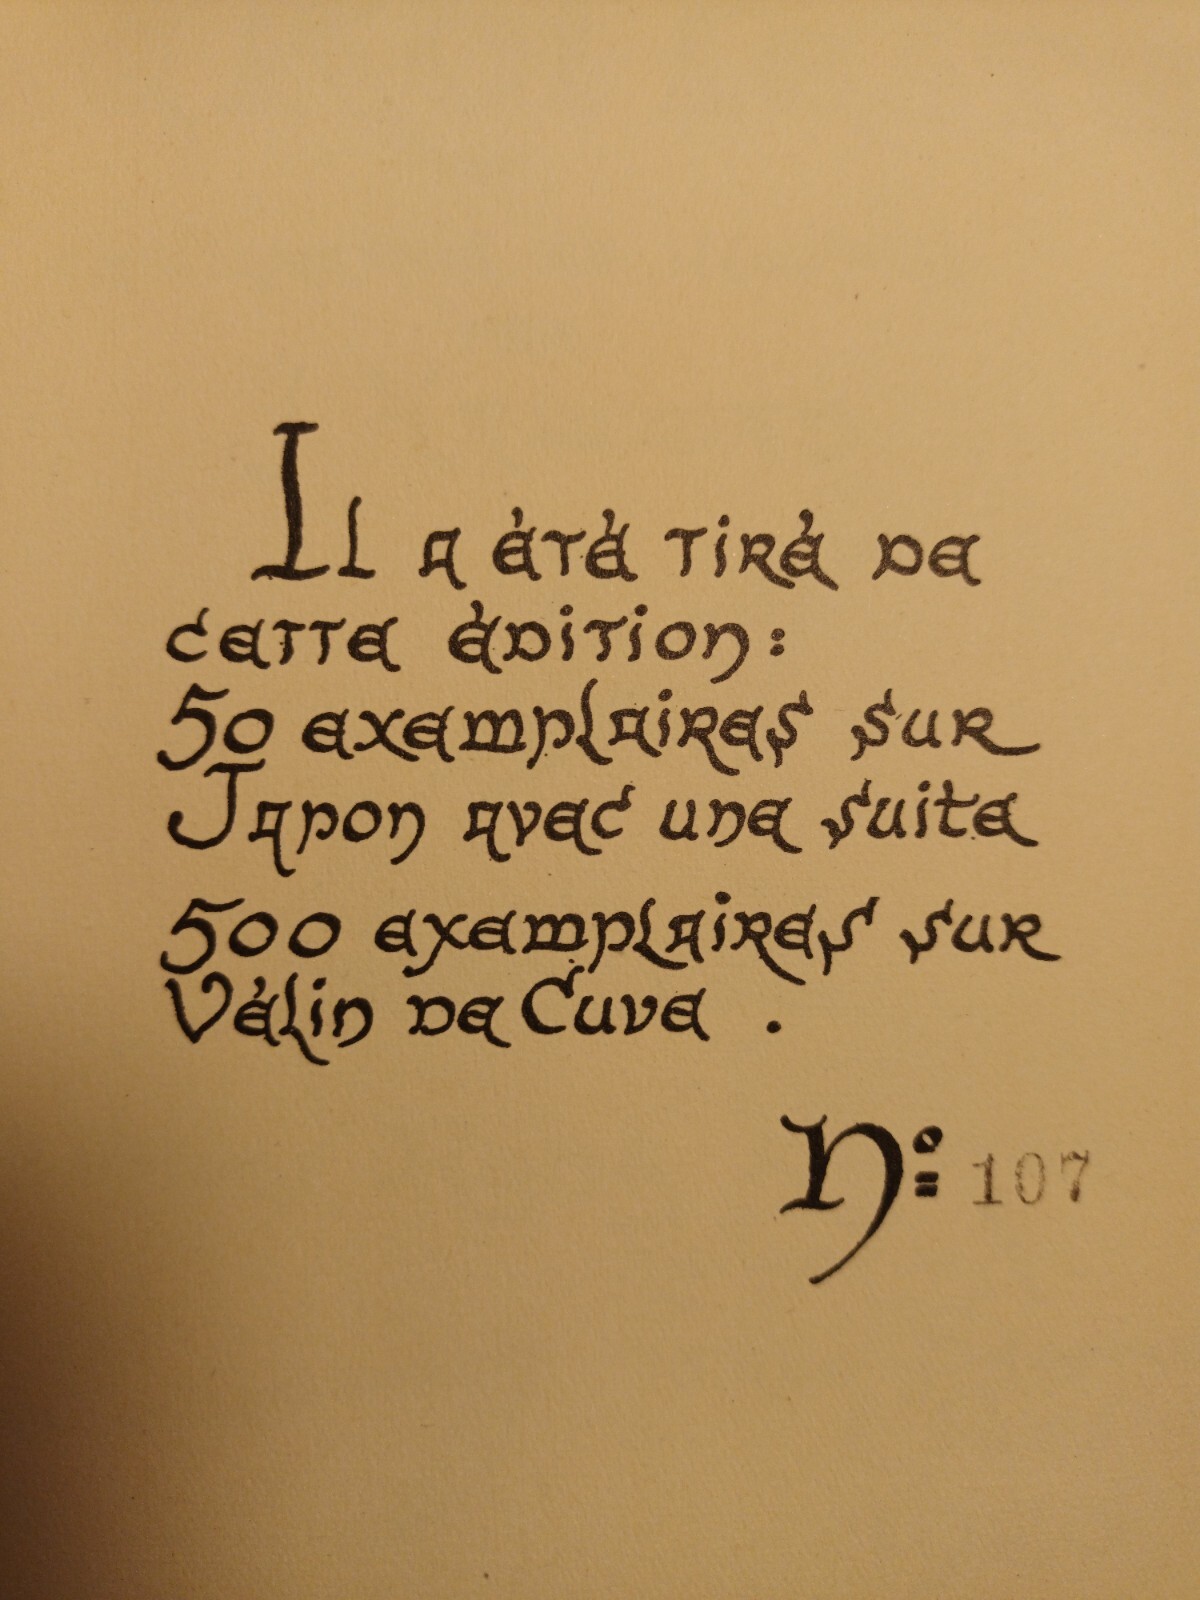 Il a été tiré de
cette édition:
50 exemplaires sur
Japon avec une suite
500 exemplaires sur
Vélin de Cuve .
Nº 107